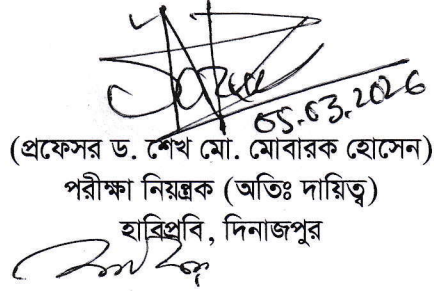 05.03.2026
(প্রফেসর ড. শেখ মো. মোবারক হোসেন)
পরীক্ষা নিয়ন্ত্রক (অতিঃ দায়িত্ব)
হাবিপ্রবি, দিনাজপুর